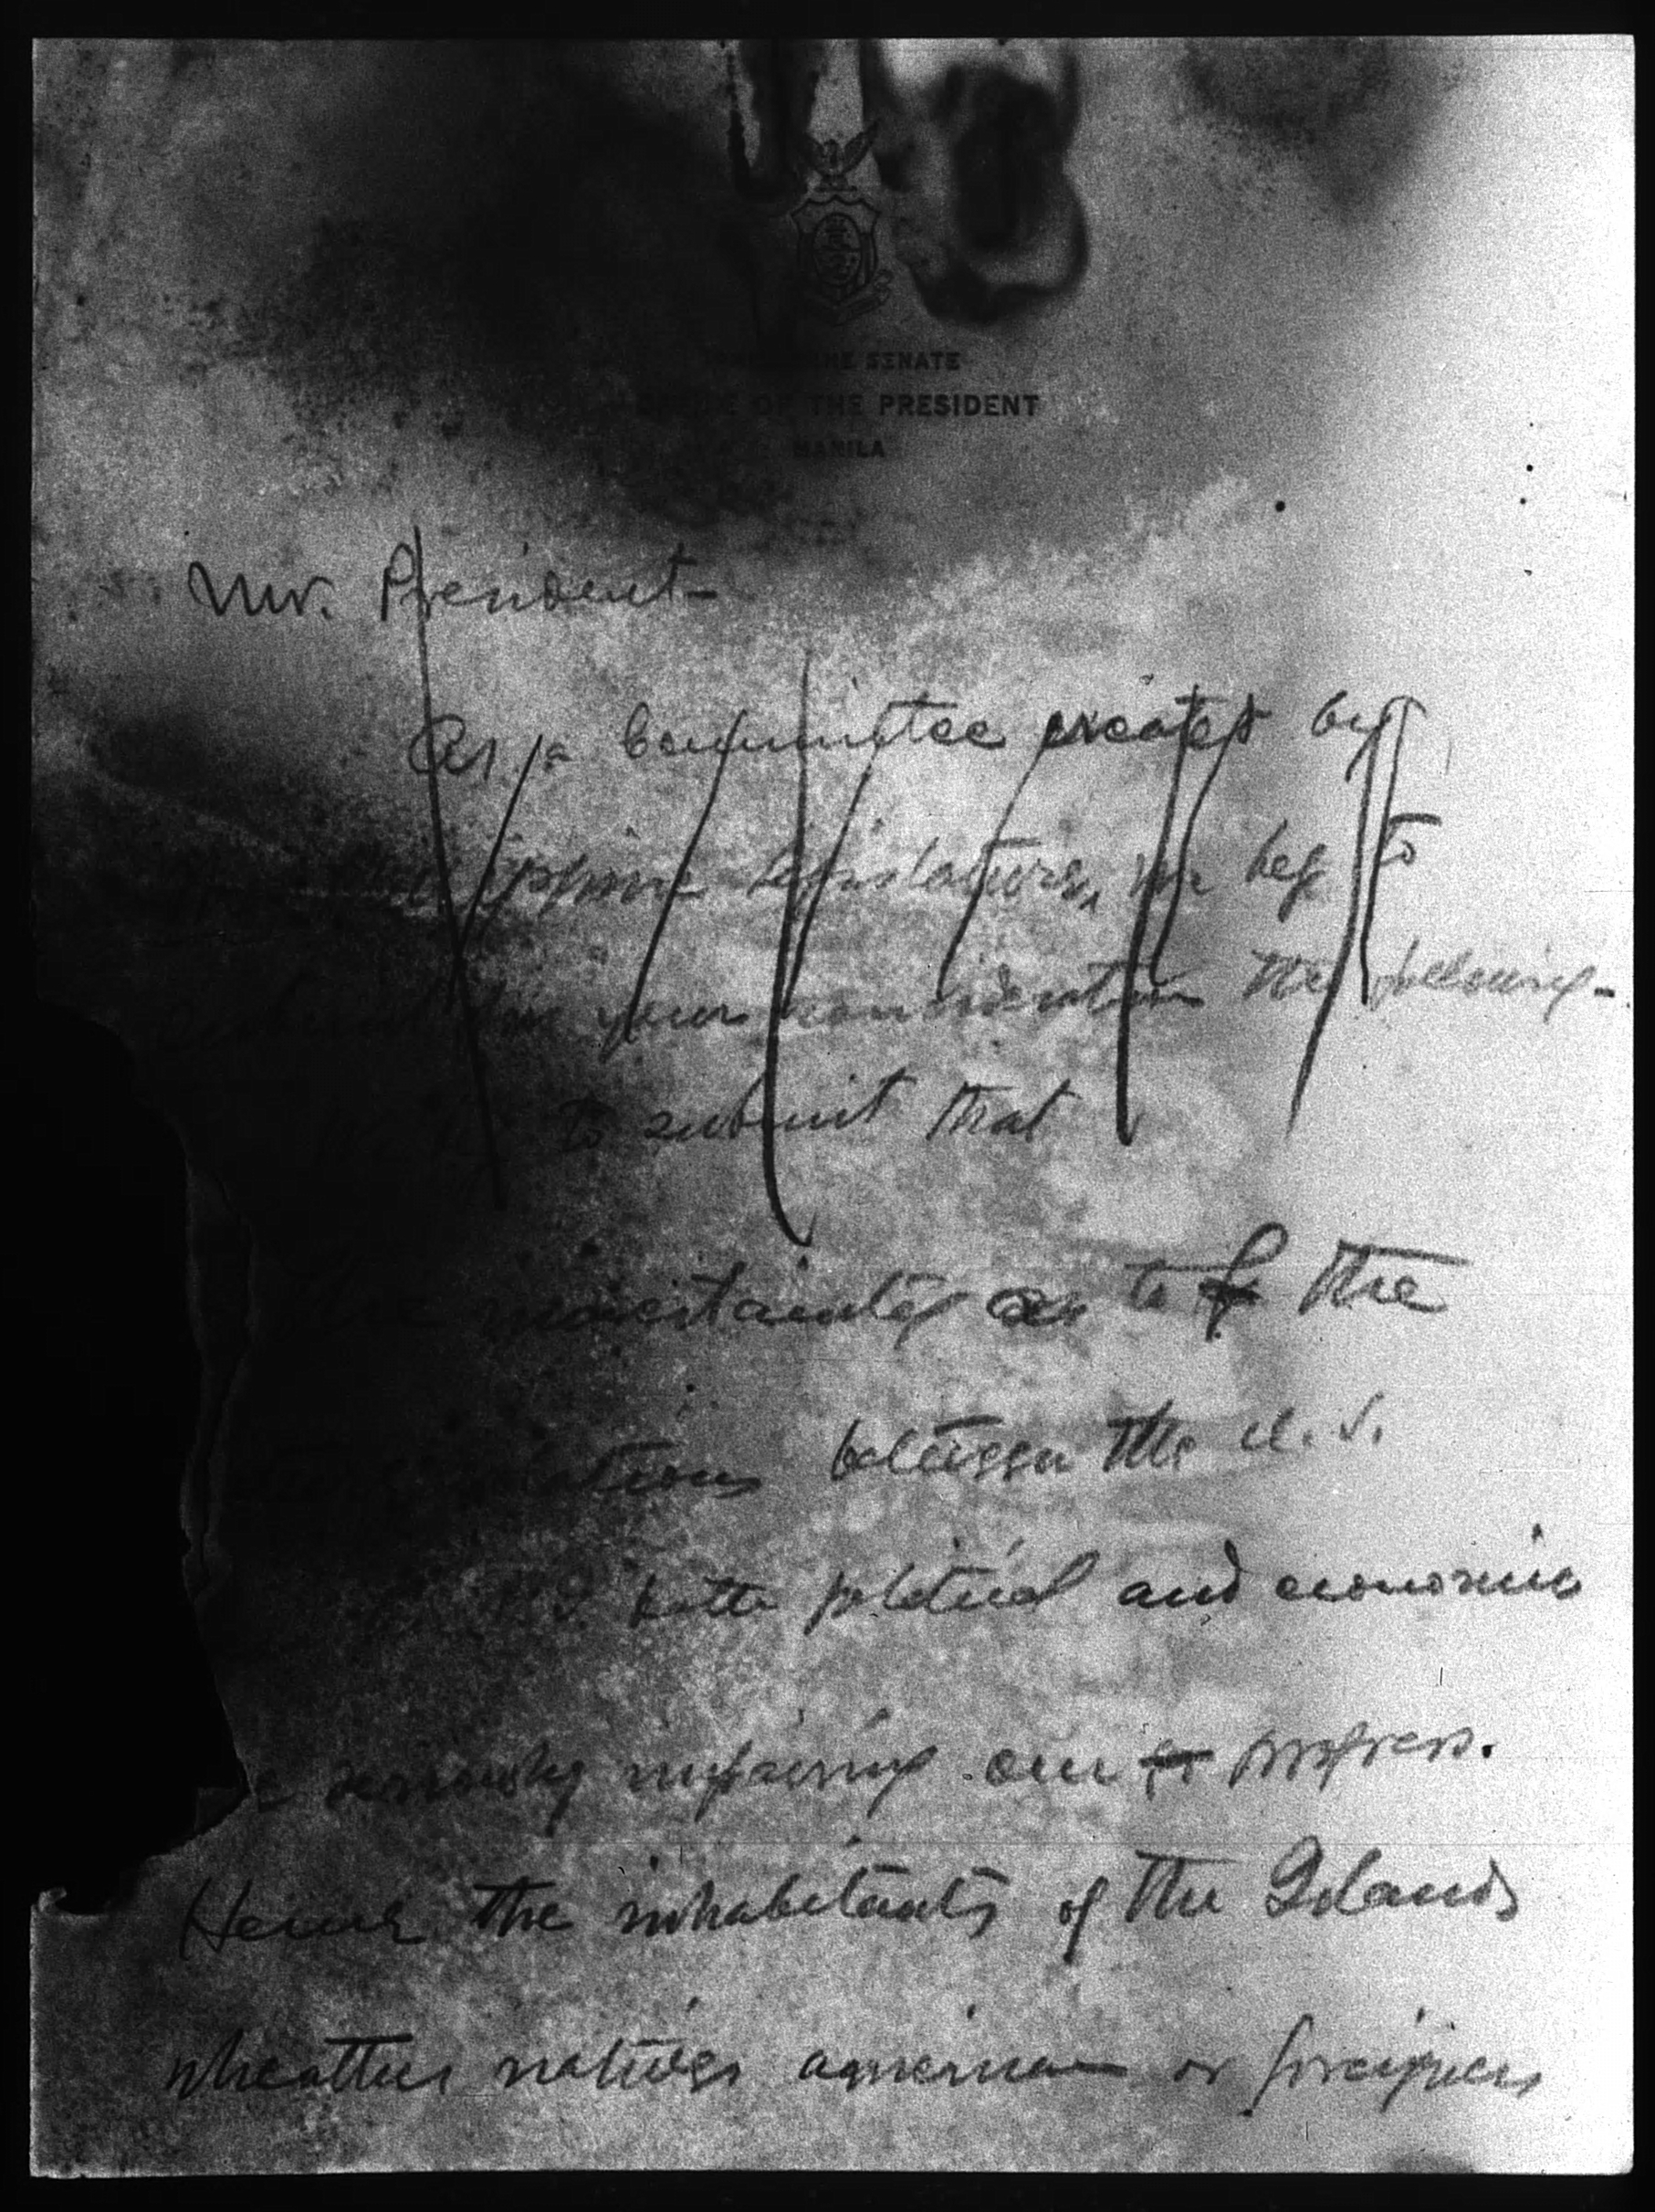 THE SENATE
OFFICE OF THE PRESIDENT
MANILA
Mr. President-
As a Committee created by
Philippine Legislature, we beg to
your consideration the following-
to submit that
the uncertainty as to of the
relations between the U.S.
P.I. both political and economic
seriously impairing our progress.
Hence the inhabitants of the Islands
wheather natives american or foreigners